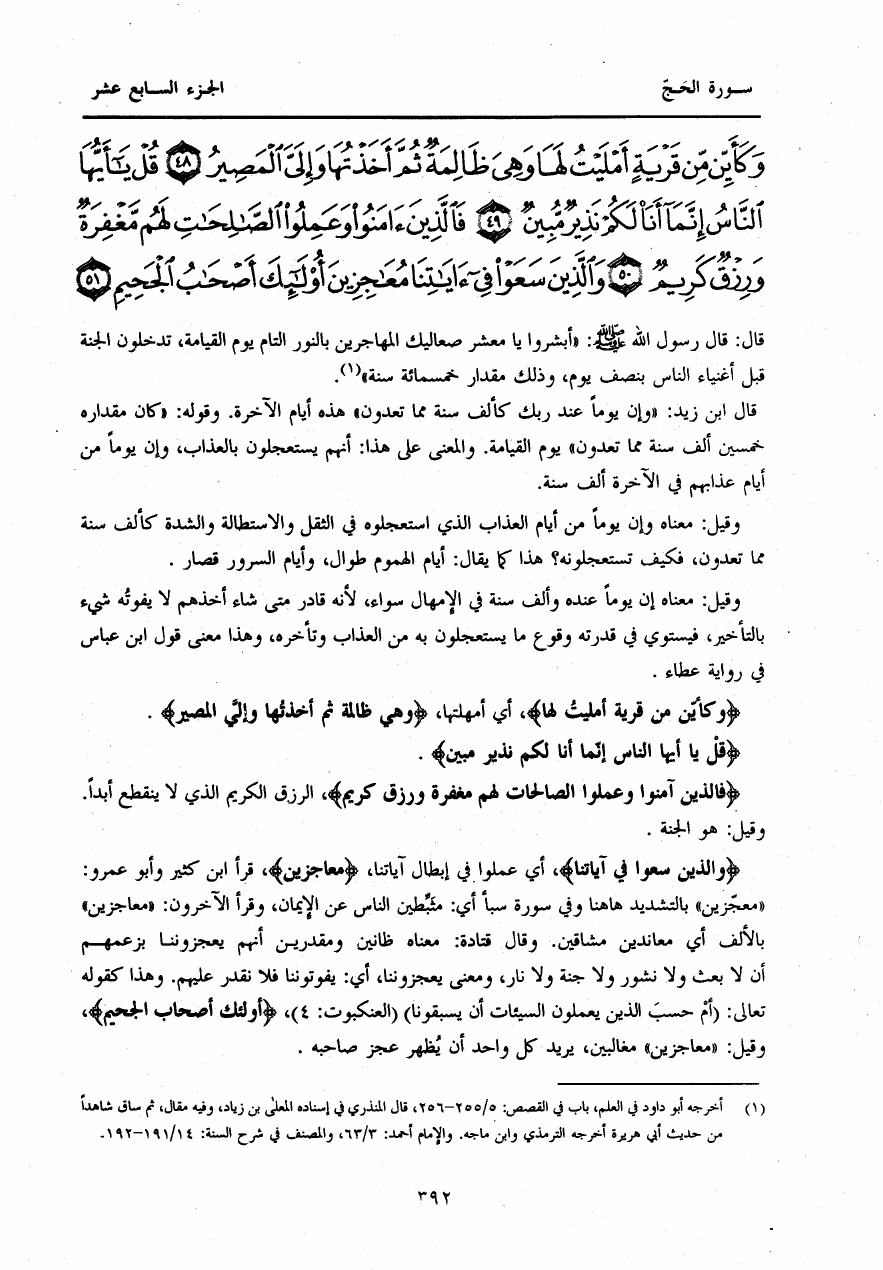 سورة الحَجّ
الجزء السابع عشر
وَكَأَيِّن مِّن قَرْيَةٍ أَمْلَيْتُ لَهَا وَهِيَ ظَالِمَةٌ ثُمَّ أَخَذْتُهَا وَإِلَيَّ ٱلْمَصِيرُ ٤٨ قُلْ يَـٰٓأَيُّهَا
ٱلنَّاسُ إِنَّمَآ أَنَا۠ لَكُمْ نَذِيرٌ مُّبِينٌ ٤٩ فَٱلَّذِينَ ءَامَنُوا۟ وَعَمِلُوا۟ ٱلصَّـٰلِحَـٰتِ لَهُم مَّغْفِرَةٌ
وَرِزْقٌ كَرِيمٌ ٥٠ وَٱلَّذِينَ سَعَوْا۟ فِىٓ ءَايَـٰتِنَا مُعَـٰجِزِينَ أُو۟لَـٰٓئِكَ أَصْحَـٰبُ ٱلْجَحِيمِ ٥١
قال: قال رسول الله ﷺ: «أبشروا يا معشر صعاليك المهاجرين بالنور التام يوم القيامة، تدخلون الجنة
قبل أغنياء الناس بنصف يوم، وذلك مقدار خمسمائة سنة»(١).
قال ابن زيد: «وإن يوماً عند ربك كألف سنة مما تعدون» هذه أيام الآخرة. وقوله: «كان مقداره
خمسين ألف سنة مما تعدون» يوم القيامة. والمعنى على هذا: أنهم يستعجلون بالعذاب، وإن يوماً من
أيام عذابهم في الآخرة ألف سنة.
وقيل: معناه وإن يوماً من أيام العذاب الذي استعجلوه في الثقل والاستطالة والشدة كألف سنة
مما تعدون، فكيف تستعجلونه؟ هذا كما يقال: أيام الهموم طوال، وأيام السرور قصار .
وقيل: معناه إن يوماً عنده وألف سنة في الإمهال سواء، لأنه قادر متى شاء أخذهم لا يفوتُه شيء
بالتأخير، فيستوي في قدرته وقوع ما يستعجلون به من العذاب وتأخره، وهذا معنى قول ابن عباس
في رواية عطاء .
﴿وكأيّن من قرية أمليتُ لها﴾، أي أمهلتها، ﴿وهي ظالمة ثم أخذتُها وإليَّ المصير﴾ .
﴿قلْ يا أيها الناس إنّما أنا لكم نذير مبين﴾ .
﴿فالذين آمنوا وعملوا الصالحات لهم مغفرة ورزق كريم﴾، الرزق الكريم الذي لا ينقطع أبداً.
وقيل: هو الجنة .
﴿والذين سعوا في آياتنا﴾، أي عملوا في إبطال آياتنا، ﴿معاجزين﴾، قرأ ابن كثير وأبو عمرو:
«معجّزين» بالتشديد هاهنا وفي سورة سبأ أي: مثبِّطين الناس عن الإيمان، وقرأ الآخرون: «معاجزين»
بالألف أي معاندين مشاقين. وقال قتادة: معناه ظانين ومقدرين أنهم يعجزوننا بزعمهم
أن لا بعث ولا نشور ولا جنة ولا نار، ومعنى يعجزوننا، أي: يفوتوننا فلا نقدر عليهم. وهذا كقوله
تعالى: (أمْ حسبَ الذين يعملون السيئات أن يسبقونا) (العنكبوت: ٤)، ﴿أولئك أصحاب الجحيم﴾،
وقيل: «معاجزين» مغالبين، يريد كل واحد أن يُظهر عجز صاحبه .
(١) أخرجه أبو داود في العلم، باب في القصص: ٢٥٥/٥–٢٥٦، قال المنذري في إسناده المعلٰى بن زياد، وفيه مقال، ثم ساق شاهداً
من حديث أبي هريرة أخرجه الترمذي وابن ماجه. والإمام أحمد: ٦٣/٣، والمصنف في شرح السنة: ١٩١/١٤–١٩٢.
٣٩٢